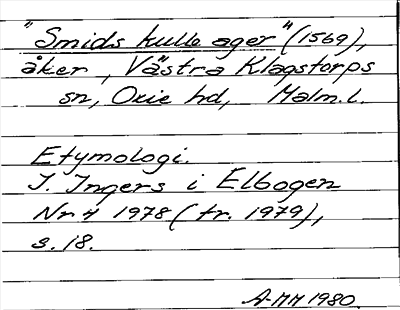 "Smids kulle ager" (1569),
åker, Västra Klagstorps
sn, Oxie hd, Malm.l.
Etymologi.
I. Ingers i Elbogen
Nr 4 1978 (tr. 1979),
s. 18.
A-MM 1980.